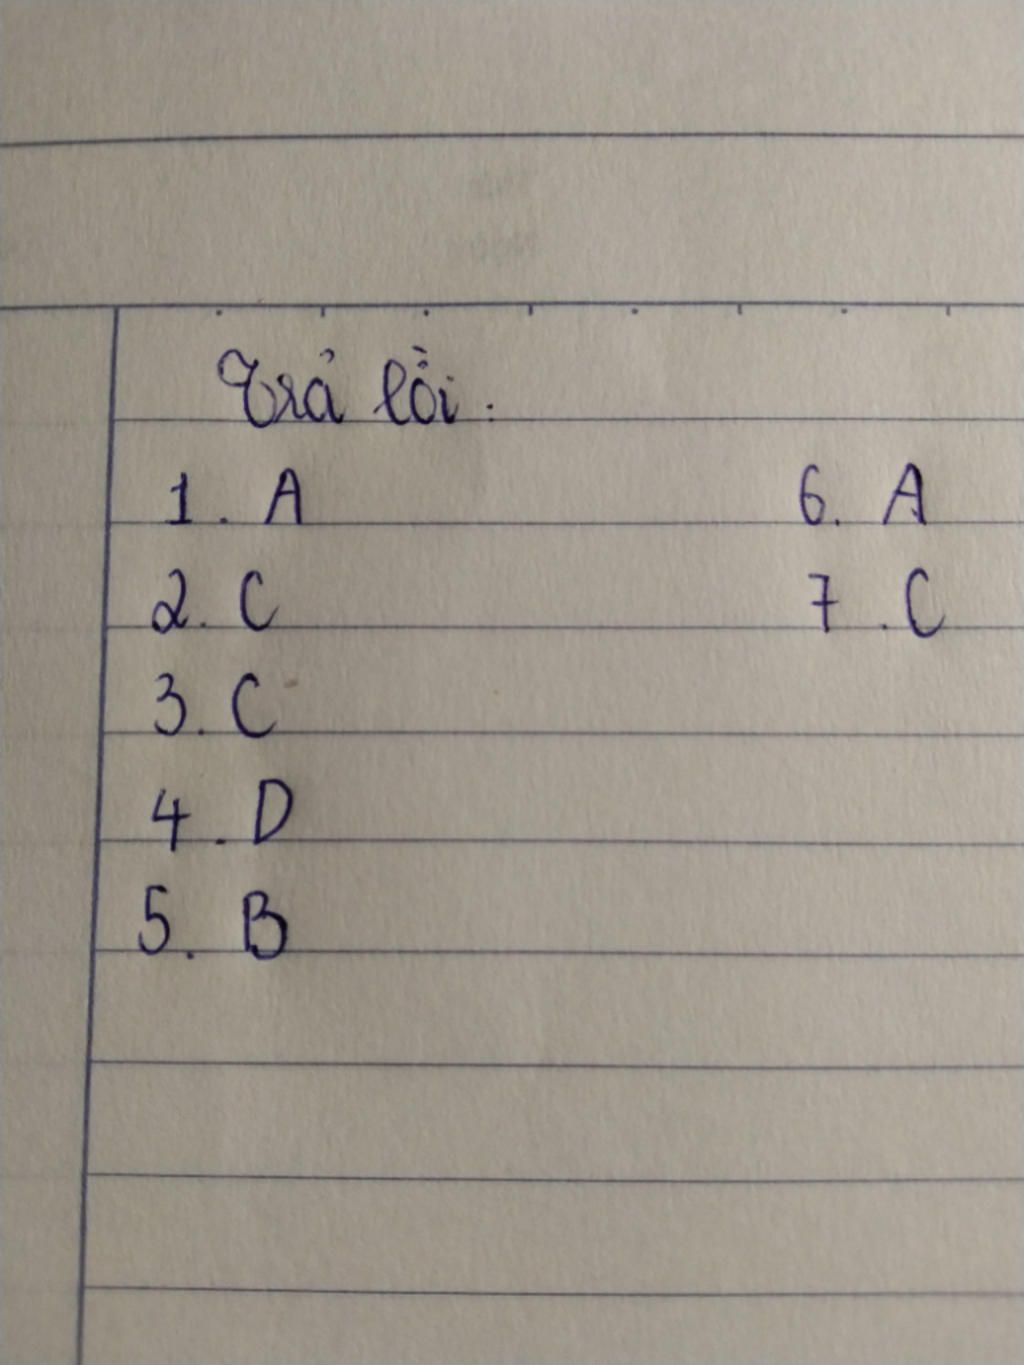 Trả lời:
1. A
2. C
3. C
4. D
5. B
6. A
7. C